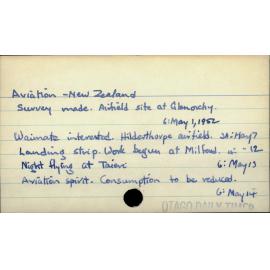 Aviation - New Zealand
Survey made. Airfield site at Glenorchy.
6: May 1, 1952
Waimate interested Hilderthorpe airfield. 3A: May 7
Landing strip. Work begun at Milford. " - 12
Night flying at Taieri 6: May 13
Aviation spirit. Consumption to be reduced.
6: May 14
OTAGO DAILY TIMES